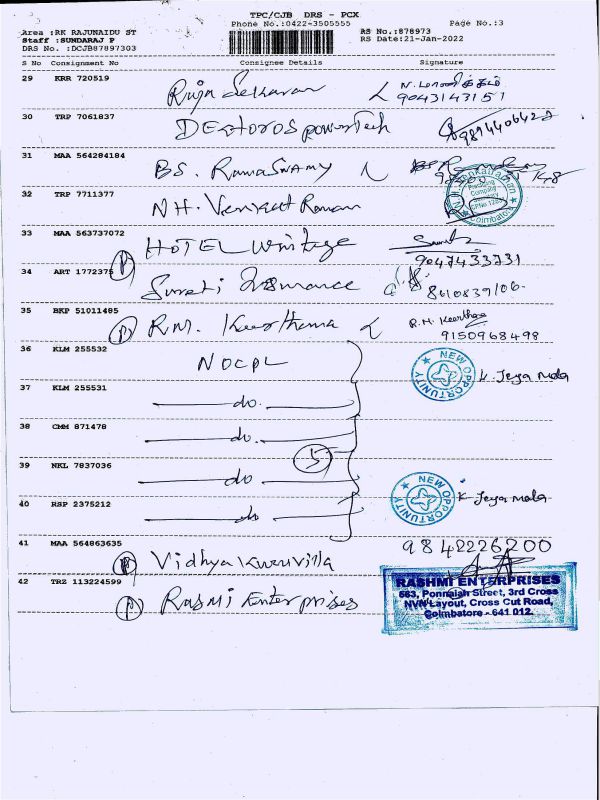 TPC/CJB DRS - PCX
Phone No.:0422-3505555
Page No.:3
Area :RK RAJUNAIDU ST
RS No.:878973
Staff :SUNDARAJ P
RS Date:21-Jan-2022
DRS No. :DCJB87897303
S No Consignment No Consignee Details Signature
29 KRR 720519
Raja Sekaran
N. மாணிக்கம்
9043143151
30 TRP 7061837
31 MAA 564284184
BS. RamaSwamy
32 TRP 7711377
NH. Venkat Raman
N.H. Venkatraman
Practising
Company
Secretary
Coimbatore
33 MAA 563737072
HOTEL
9047433731
34 ART 1772375
8610839106
35 BKP 51011485
P RM. Keerthana
R.M. Keerthana
9150968498
36 KLM 255532
NOCPL
NEW OPPORTUNITY
K. Jeya Mala
37 KLM 255531
do.
38 CMM 871478
do.
39 NKL 7837036
do.
5
NEW OPPORTUNITY
K Jeya mala
40 RSP 2375212
do
41 MAA 564863635
P Vidhya Kuruvilla
9842226200
42 TRZ 113224599
P Rashmi Enterprises
RASHMI ENTERPRISES
563, Ponnaiah Street, 3rd Cross
NVN Layout, Cross Cut Road,
Coimbatore - 641 012.